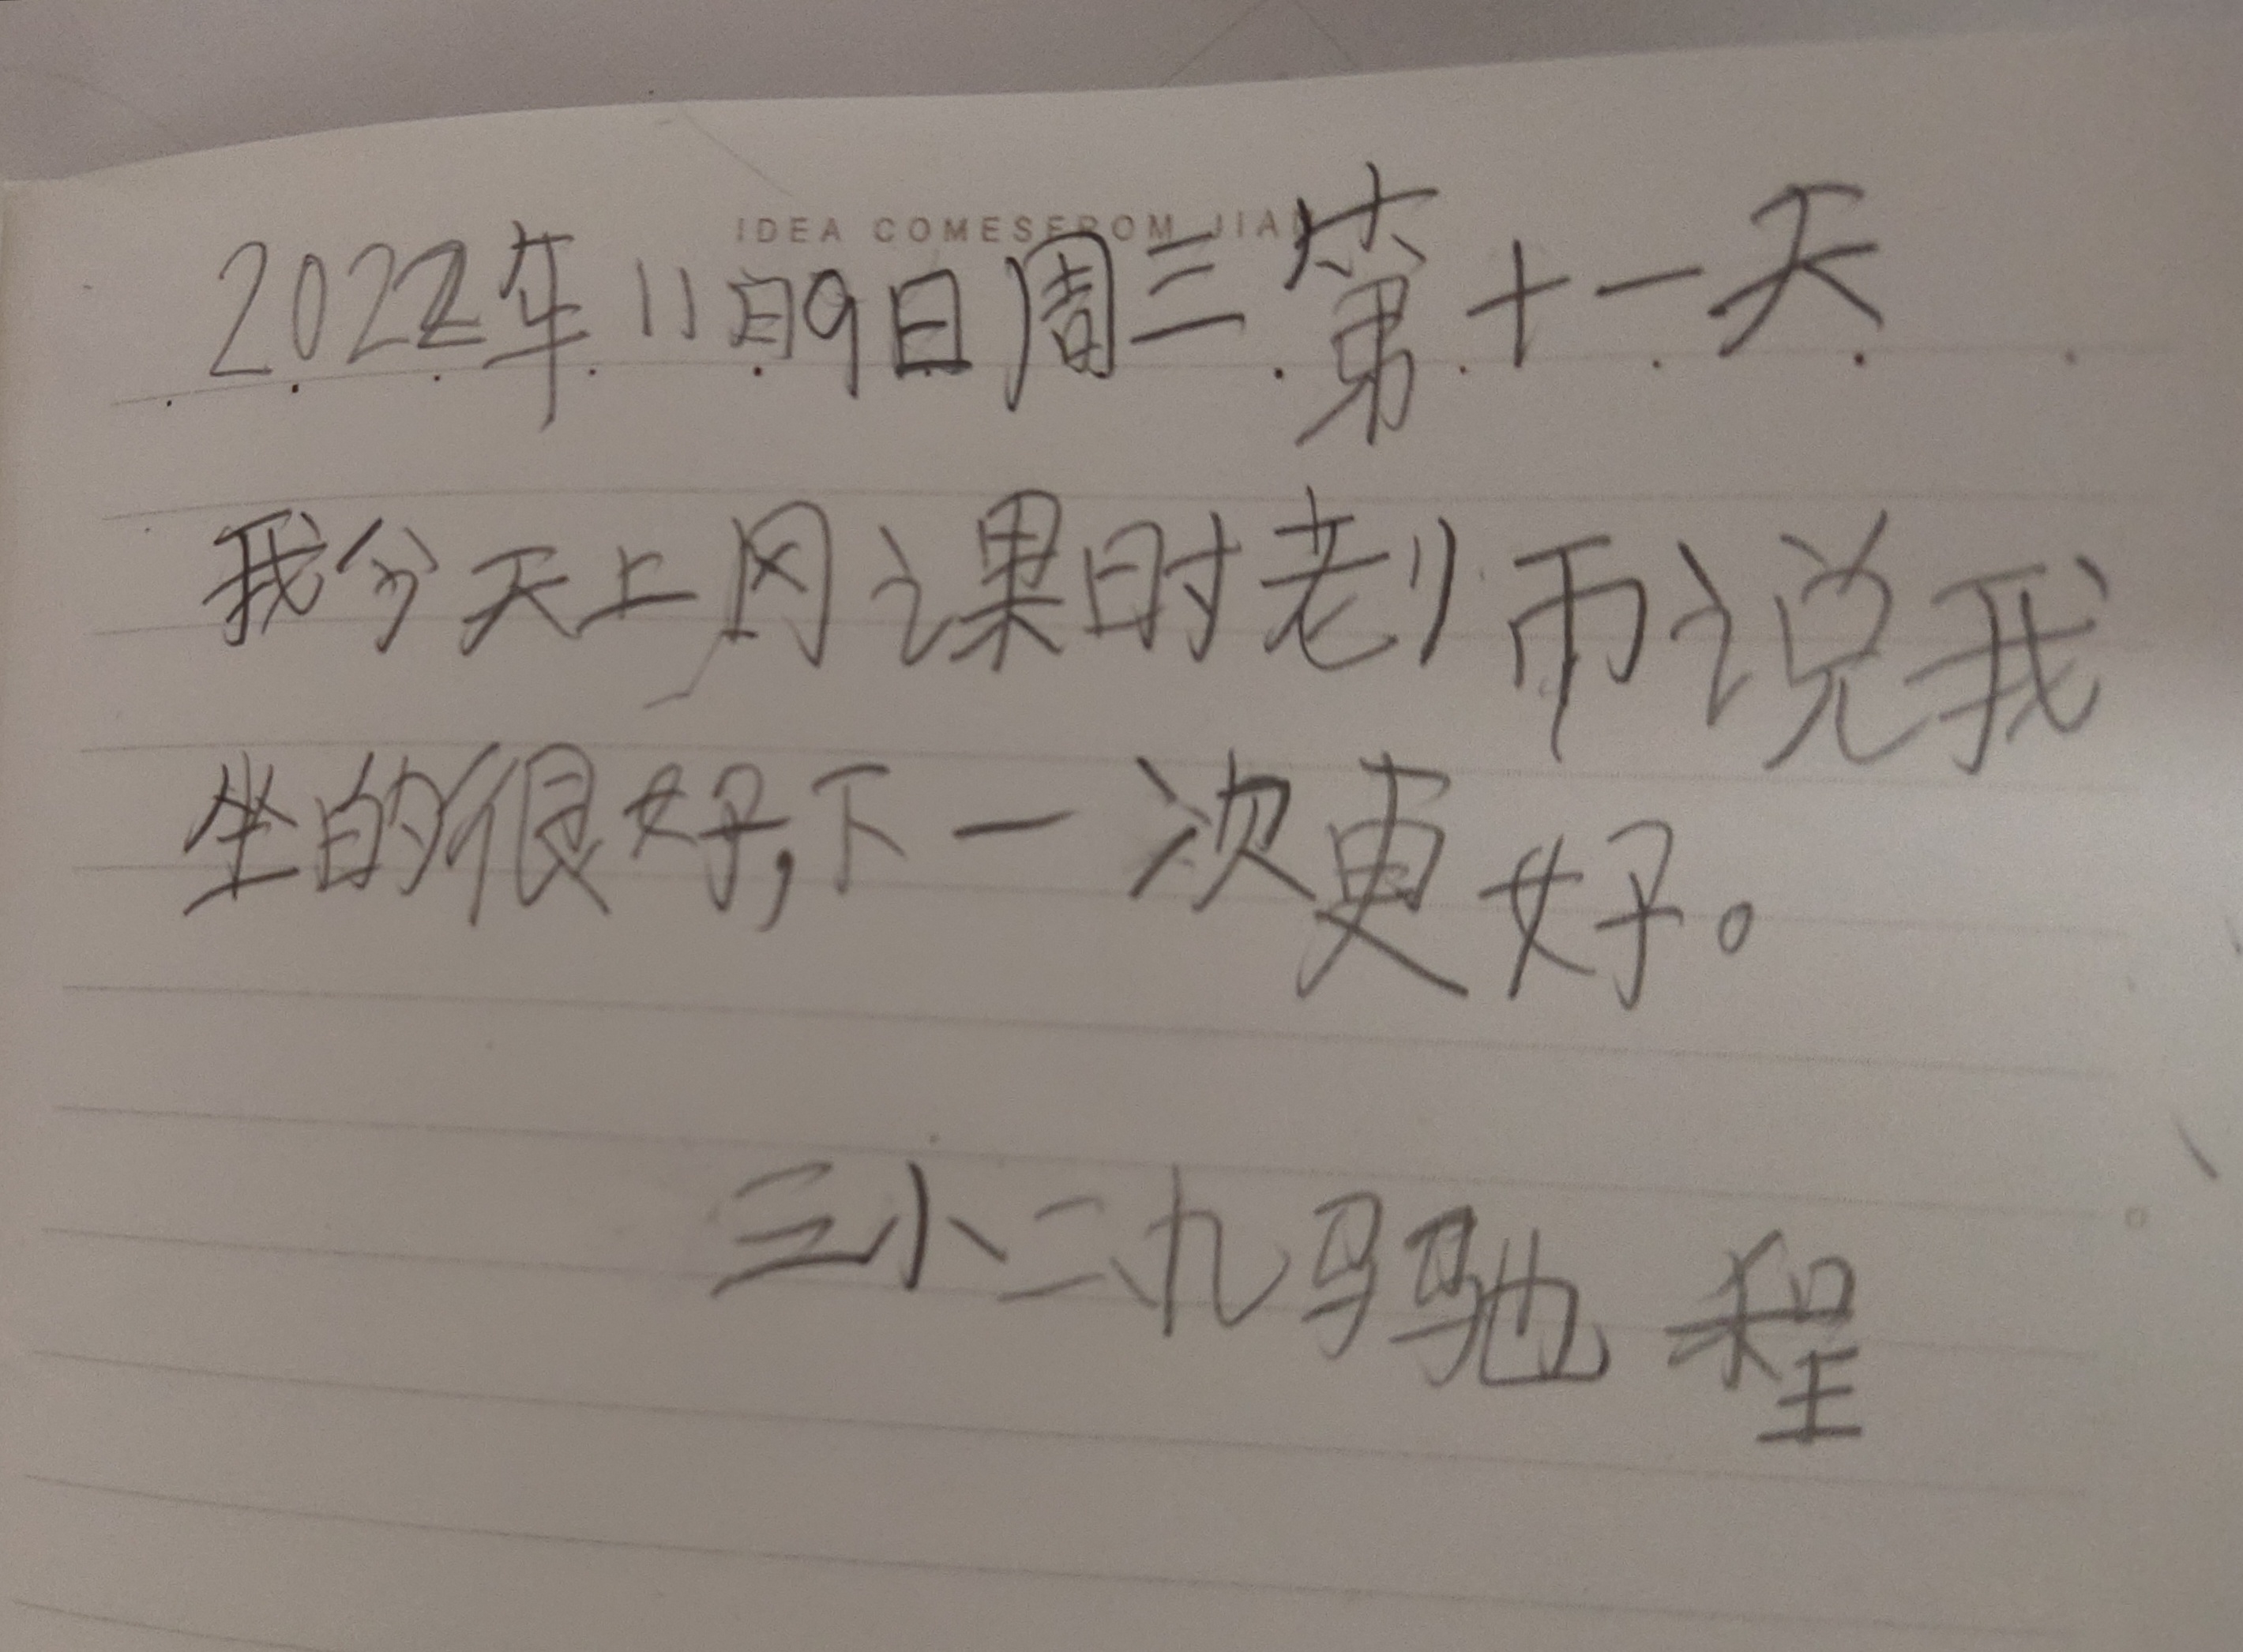 IDEA COMESFROM JIA
2022年11月9日周三第十一天
我今天上网课时老师说我
坐的很好,下一次更好。
三小二九马驰程